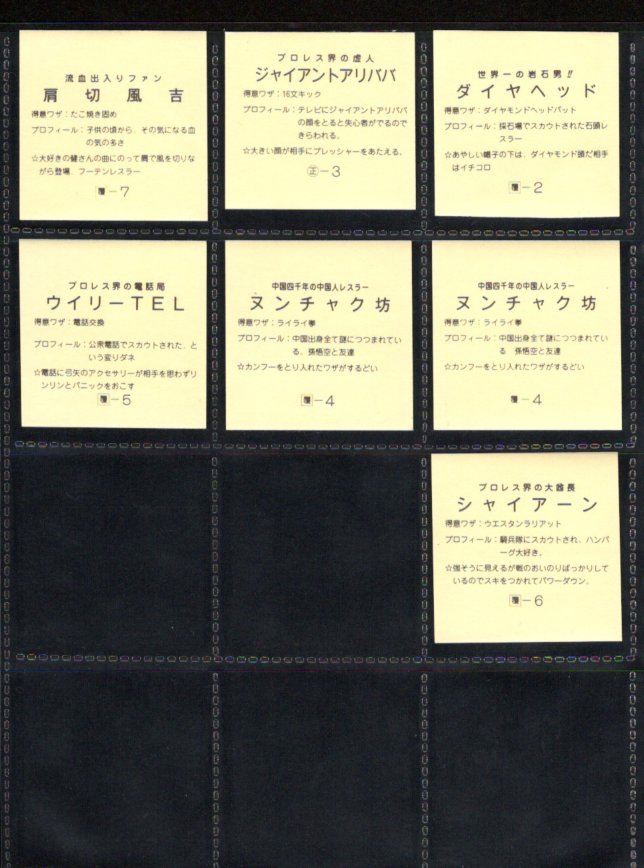 流血出入りファン
肩切風吉
得意ワザ：たこ焼き固め
プロフィール：子供の頃から、その気になる血
の気の多さ
☆大好きの健さんの曲にのって肩で風を切りな
がら登場、フーテンレスラー
覆－7
プロレス界の虚人
ジャイアントアリババ
得意ワザ：16文キック
プロフィール：テレビにジャイアントアリババ
の顔をとると失心者がでるので
きらわれる。
☆大きい顔が相手にプレッシャーをあたえる。
正－3
世界一の岩石男!!
ダイヤヘッド
得意ワザ：ダイヤモンドヘッドバット
プロフィール：採石場でスカウトされた石頭レ
スラー
☆あやしい帽子の下は、ダイヤモンド頭だ相手
はイチコロ
覆－2
プロレス界の電話局
ウイリーTEL
得意ワザ：電話交換
プロフィール：公衆電話でスカウトされた、と
いう変りダネ
☆電話に弓矢のアクセサリーが相手を思わずリ
ンリンとパニックをおこす
覆－5
中国四千年の中国人レスラー
ヌンチャク坊
得意ワザ：ライライ拳
プロフィール：中国出身全て謎につつまれてい
る、孫悟空と友達
☆カンフーをとり入れたワザがするどい
覆－4
中国四千年の中国人レスラー
ヌンチャク坊
得意ワザ：ライライ拳
プロフィール：中国出身全て謎につつまれてい
る　孫悟空と友達
☆カンフーをとり入れたワザがするどい
覆－4
プロレス界の大酋長
シャイアーン
得意ワザ：ウエスタンラリアット
プロフィール：騎兵隊にスカウトされ、ハンバ
ーグ大好き。
☆強そうに見えるが戦のおいのりばっかりして
いるのでスキをつかれてパワーダウン。
覆－6